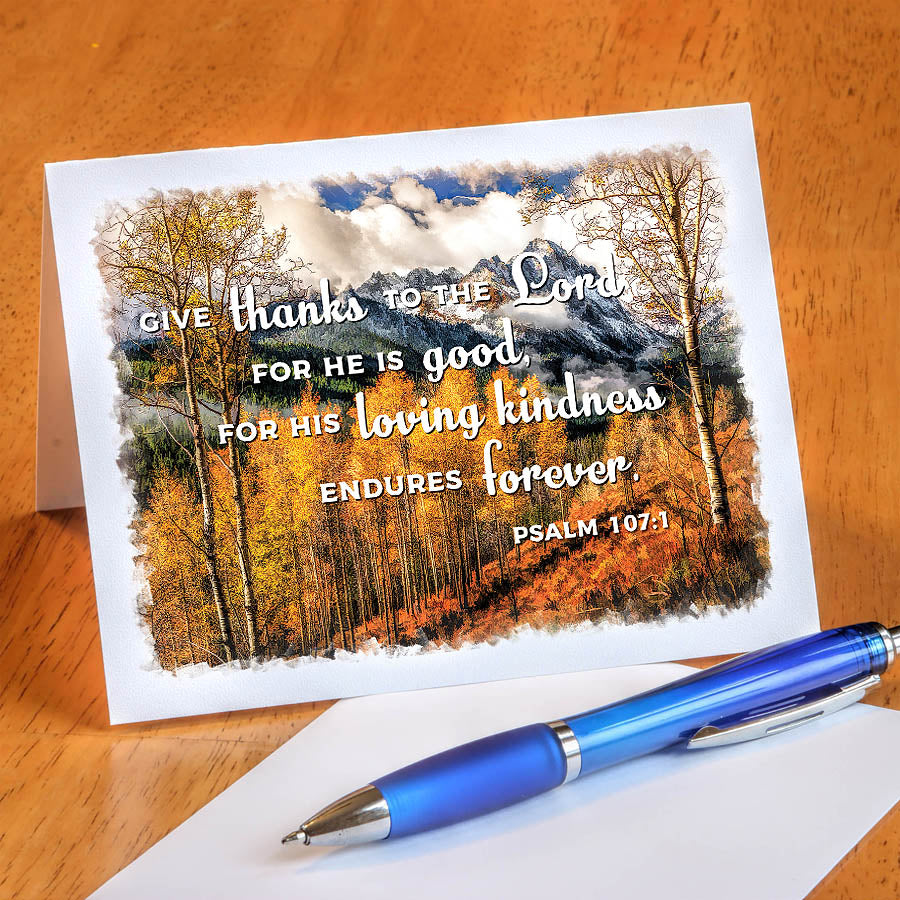 GIVE thanks TO THE Lord,
FOR HE IS good,
FOR HIS loving kindness
ENDURES forever.
PSALM 107:1